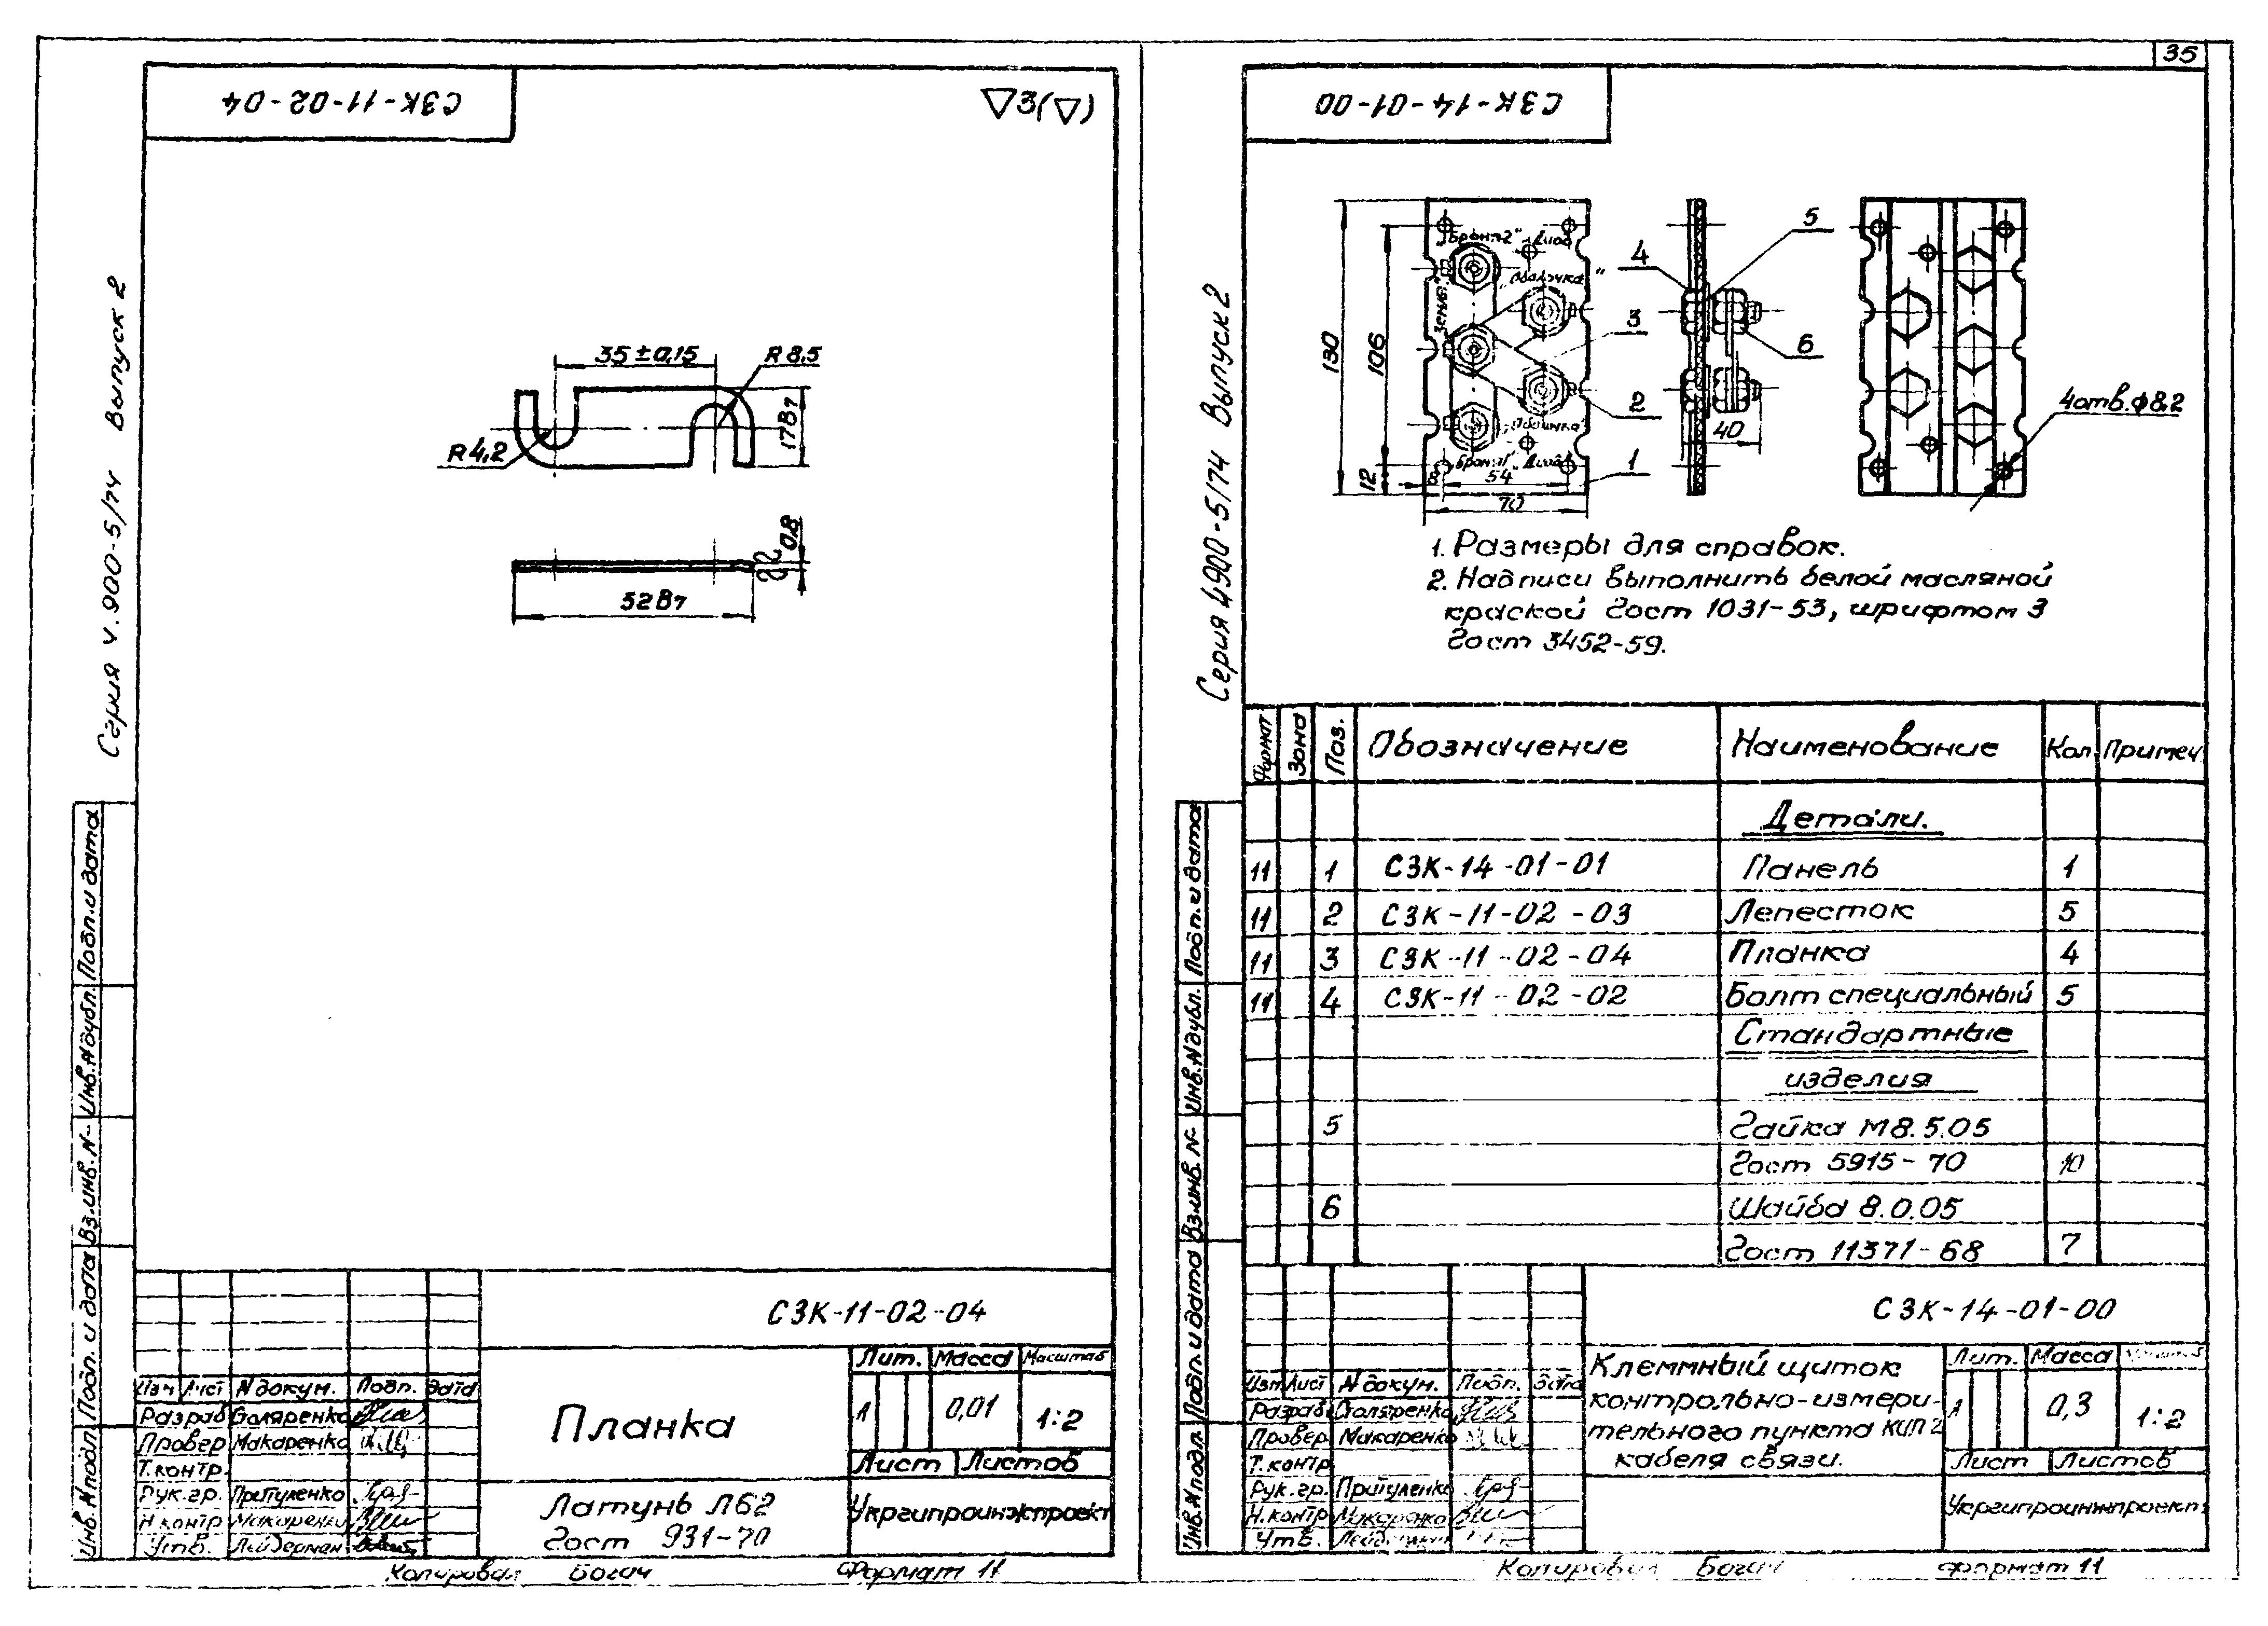 СЗК-11-02-04
▽3(▽)
Серия 4.900-5/74 Выпуск 2
35±0,15
R 8,5
R 4,2
17В7
0,8
52В7
Подп. и дата
Инв.N дубл.
Вз.инв.N
Подп. и дата
Инв.N подл.
СЗК-11-02-04
Изм Лист N докум. Подп. Дата
Разраб Столяренко
Провер Макаренко
Т.контр.
Рук.гр. Притуленко
Н.контр Макаренко
Утв. Лейдерман
Планка
Лит. Масса Масштаб
А 0,01 1:2
Лист Листов
Латунь Л62
Гост 931-70
Укргипроинжпроект
Копировал Богач Формат 11
35
СЗК-14-01-00
Серия 4.900-5/74 Выпуск 2
130
106
12
8
54
70
„Броня2" Диод
„Оболочка"
„Земля"
„Броня1" Диод
1
2
3
4
5
6
40
4 отв. ф8,2
1. Размеры для справок.
2. Надписи выполнить белой масляной
краской Гост 1031-53, шрифтом 3
Гост 3452-59.
Формат Зона Поз. Обозначение Наименование Кол. Примеч.
Детали.
11 1 СЗК-14-01-01 Панель 1
11 2 СЗК-11-02-03 Лепесток 5
11 3 СЗК-11-02-04 Планка 4
11 4 СЗК-11-02-02 Болт специальный 5
Стандартные
изделия
5 Гайка М8.5.05
Гост 5915-70 10
6 Шайба 8.0.05
Гост 11371-68 7
Подп. и дата
Инв.N дубл.
Вз.инв.N
Подп. и дата
Инв.N подл.
СЗК-14-01-00
Изм Лист N докум. Подп. Дата
Разраб. Столяренко
Провер Макаренко
Т.контр
Рук.гр. Притуленко
Н.контр Макаренко
Утв. Лейдерман
Клеммный щиток
контрольно-измери-
тельного пункта КИП 2
кабеля связи.
Лит. Масса Масштаб
А 0,3 1:2
Лист Листов
Укргипроинжпроект
Копировал Богач Формат 11